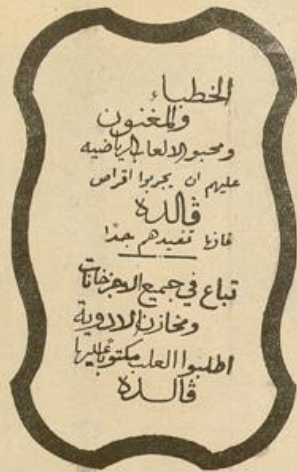 الخطباء
والمغنون
ومحبو الالعاب الرياضيه
عليهم ان يجربوا اقراص
ڤالده
فانها تفيدهم جدًا
تباع في جميع الاجزخانات
ومخازن الادوية
اطلبوا العلب مكتوباً عليها
ڤالده